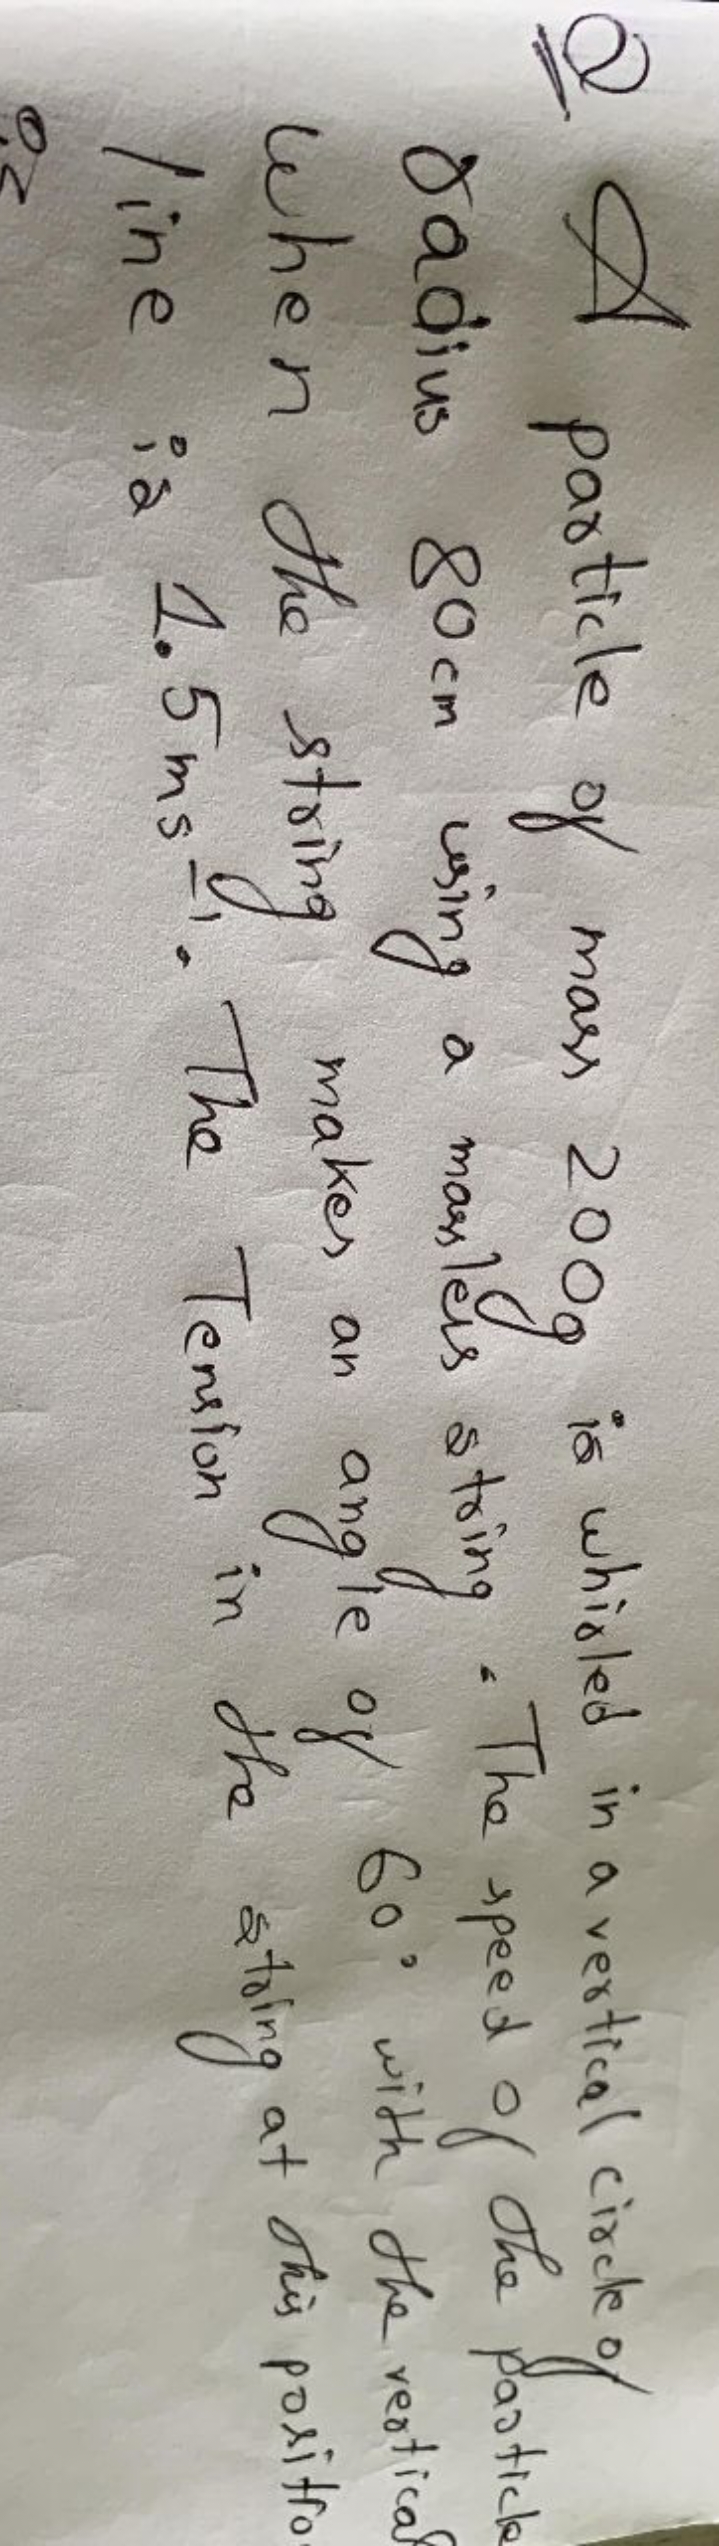 Q. A particle of mass 200g is whirled in a vertical circle of
radius 80cm using a massless string. The speed of the particle
when the string makes an angle of 60° with the vertical
line is 1.5ms⁻¹. The Tension in the string at this positio
is